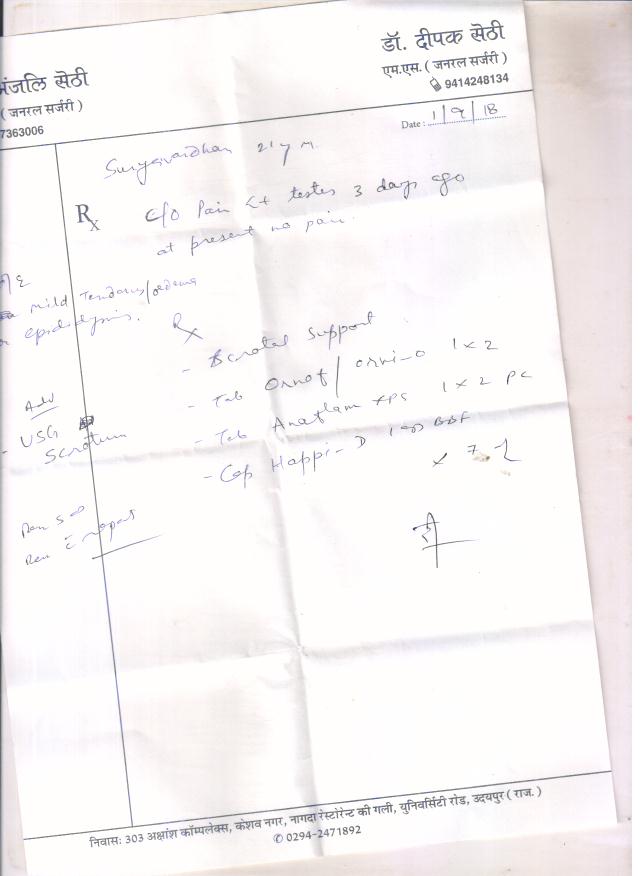 डॉ. दीपक सेठी
एम.एस. ( जनरल सर्जरी )
9414248134
ंजलि सेठी
( जनरल सर्जरी )
7363006
Date : 1/9/18
Suryavardhan 21 y M.
Rx
c/o Pain Lt testes 3 days ago
at present no pain.
mild Tenderness/oedema
epididymis.
Rx
- Scrotal Support
- Tab Ornof / Orni-O 1 x 2
- Tab Anaflam XPS 1 x 2 PC
- Cap Happi-D 1 OD BBF
x 7
Adv
- USG
Scrotum
Rev c report
निवास: 303 अक्षांश कॉम्पलेक्स, केशव नगर, नागदा रेस्टोरेन्ट की गली, युनिवर्सिटी रोड, उदयपुर ( राज. )
✆ 0294-2471892